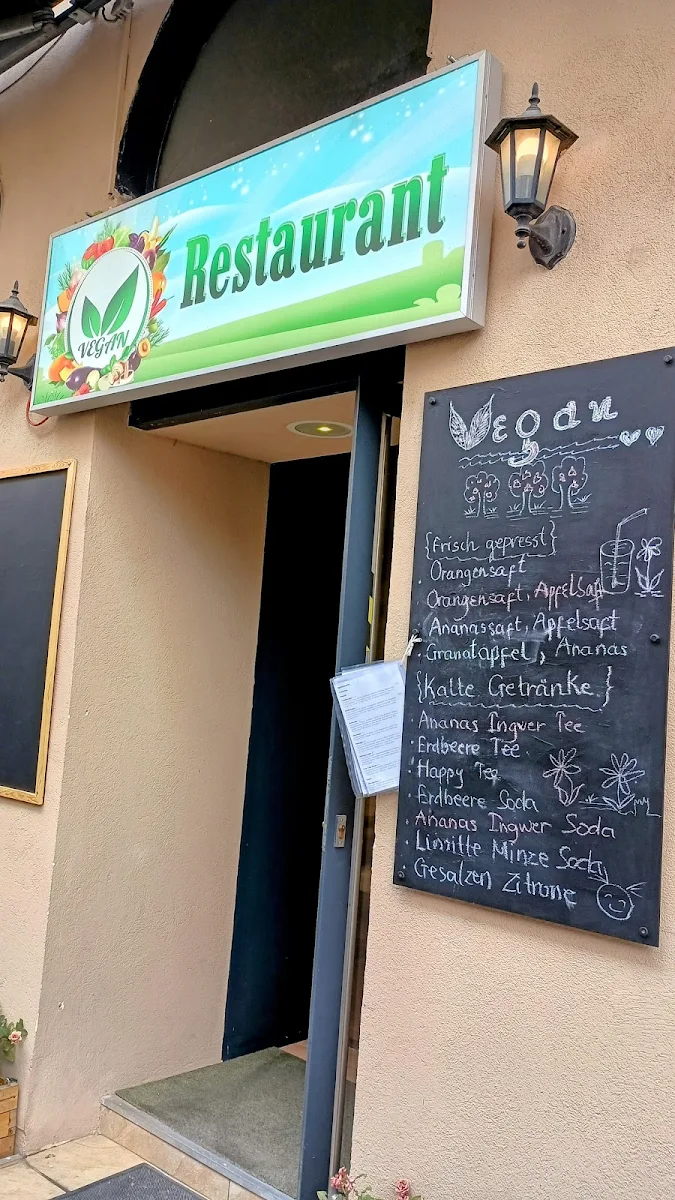 Restaurant
VEGAN
Vegan
{Frisch gepresst}
· Orangensaft
· Orangensaft, Apfelsaft
· Ananassaft, Apfelsaft
· Granatapfel, Ananas
{Kalte Getränke}
· Ananas Ingwer Tee
· Erdbeere Tee
· Happy Tee
· Erdbeere Soda
· Ananas Ingwer Soda
· Limitte Minze Soda
· Gesalzen Zitrone